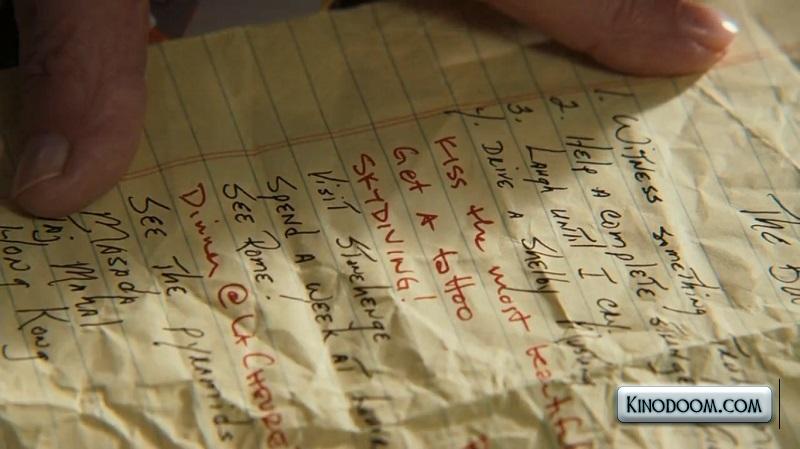 The Bu
1. Witness something
2. Help a complete
3. Laugh until I cry
4. Drive a Shelby
Kiss the most beautiful
Get A tattoo
SKYDIVING!
Visit Stonehenge
Spend a week at
See Rome!
Dinner @ La Chevre
See the Pyramids
Masada
Taj Mahal
Hong Kong
KINODOOM.COM